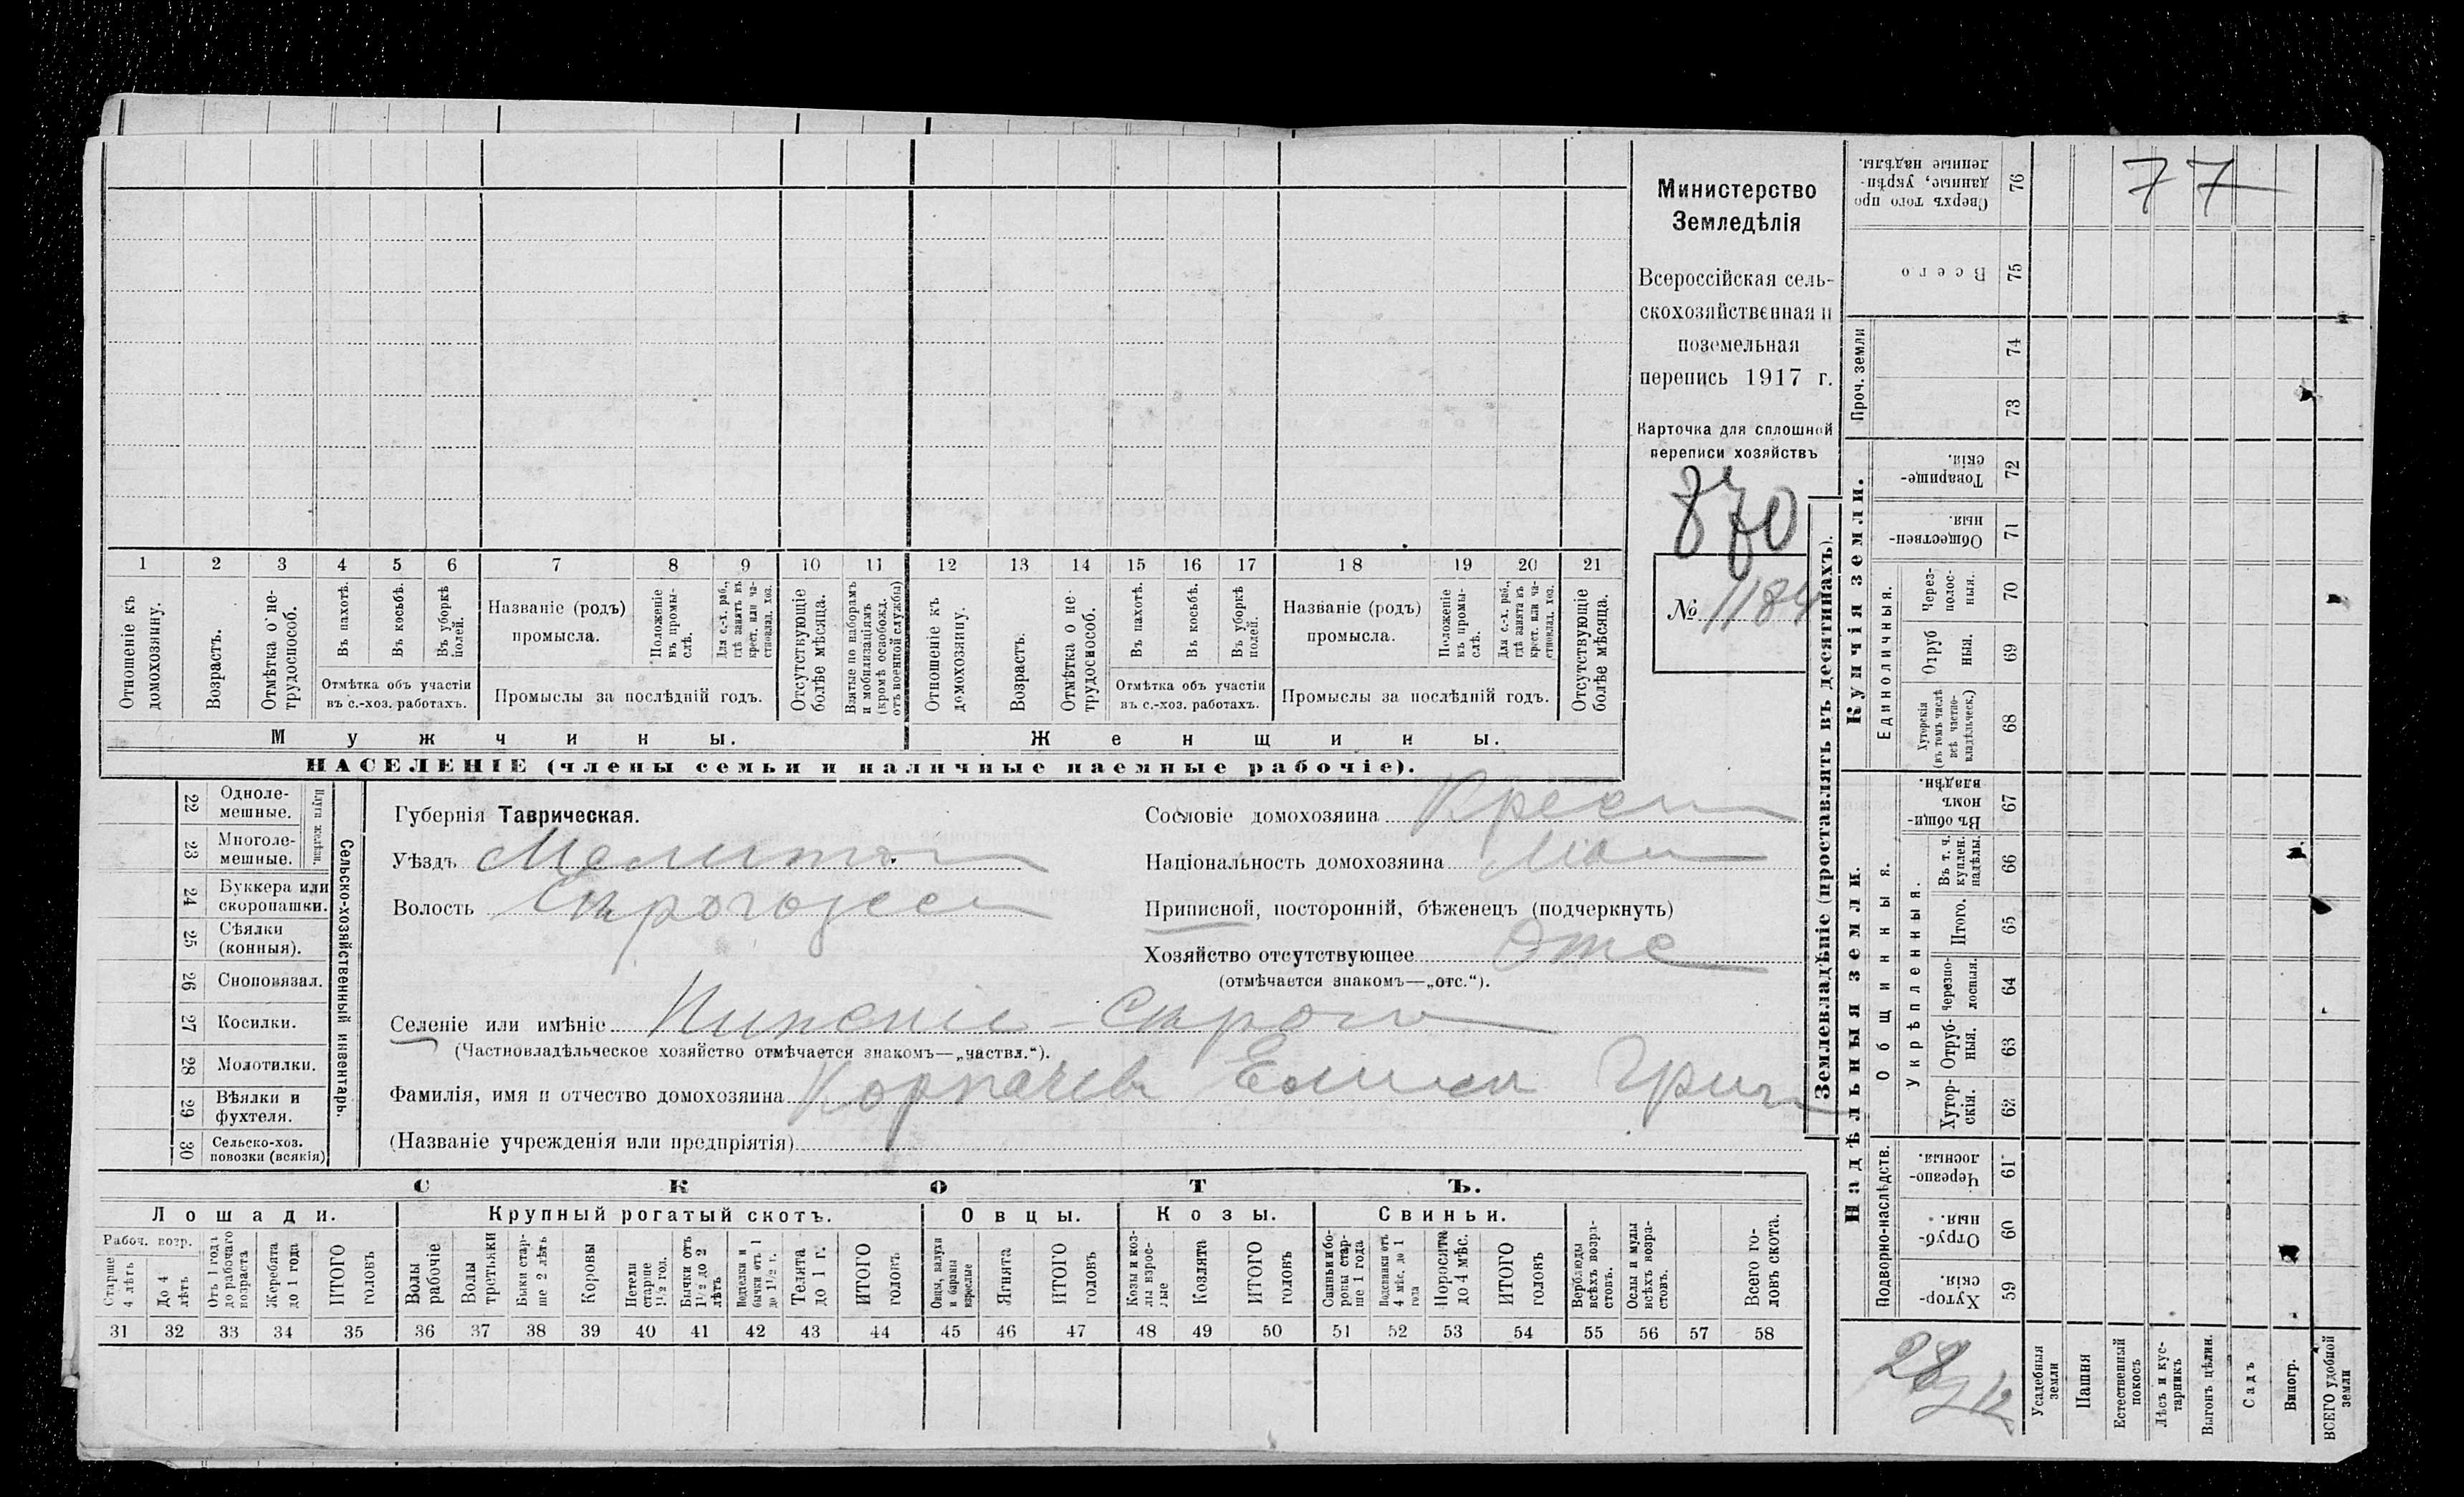 Министерство
Земледѣлія
Всероссійская сель-
скохозяйственная и
поземельная
перепись 1917 г.
Карточка для сплошной
переписи хозяйствъ
870
№ 1184
1 2 3 4 5 6 7 8 9 10 11 12 13 14 15 16 17 18 19 20 21
Отношеніе къ
домохозяину.
Возрастъ.
Отмѣтка о не-
трудоспособ.
Въ пахотѣ.
Въ косьбѣ.
Въ уборкѣ
полей.
Отмѣтка объ участіи
въ с.-хоз. работахъ.
Названіе (родъ)
промысла.
Положеніе
въ промы-
слѣ.
Для с.-х. раб.,
гдѣ занятъ въ
крест. или ча-
стновлад. хоз.
Промыслы за послѣдній годъ.
Отсутствующіе
болѣе мѣсяца.
Взятые по наборамъ
и мобилизаціямъ
(кромѣ освобожд.
отъ военной службы)
Отношеніе къ
домохозяину.
Возрастъ.
Отмѣтка о не-
трудоспособ.
Въ пахотѣ.
Въ косьбѣ.
Въ уборкѣ
полей.
Отмѣтка объ участіи
въ с.-хоз. работахъ.
Названіе (родъ)
промысла.
Положеніе
въ промы-
слѣ.
Для с.-х. раб.,
гдѣ занята въ
крест. или ча-
стновлад. хоз.
Промыслы за послѣдній годъ.
Отсутствующіе
болѣе мѣсяца.
Мужчины.
Женщины.
НАСЕЛЕНІЕ (члены семьи и наличные наемные рабочіе).
22 Одноле-
мешные.
23 Многоле-
мешные.
Плуги желѣзн.
24 Буккера или
скоропашки.
25 Сѣялки
(конныя).
26 Сноповязал.
27 Косилки.
28 Молотилки.
29 Вѣялки и
фухтеля.
30 Сельско-хоз.
повозки (всякія)
Сельско-хозяйственный инвентарь.
Губернія Таврическая.
Уѣздъ Мелитоп
Волость Строгозес
Сословіе домохозяина Крест
Національность домохозяина
Приписной, посторонній, бѣженецъ (подчеркнуть)
Хозяйство отсутствующее Отс
(отмѣчается знакомъ—„отс.“).
Селеніе или имѣніе Нижніе-Строг
(Частновладѣльческое хозяйство отмѣчается знакомъ—„частвл.“).
Фамилія, имя и отчество домохозяина Корпачев Елисей Григ
(Названіе учрежденія или предпріятія)
СКОТЪ.
Лошади.
Крупный рогатый скотъ.
Овцы.
Козы.
Свиньи.
Рабоч. возр.
Старше
4 лѣтъ
До 4
лѣтъ
Отъ 1 года
до рабочаго
возраста
Жеребята
до 1 года
ИТОГО
головъ
Волы
рабочіе
Волы
третьяки
Быки стар-
ше 2 лѣтъ
Коровы
Нетели
старше
1½ год.
Бычки отъ
1½ до 2
лѣтъ
Подтелки и
бычки отъ 1
до 1½ г.
Телята
до 1 г.
ИТОГО
головъ
Овцы, валухи
и бараны
взрослые
Ягнята
ИТОГО
головъ
Козы и коз-
лы взрос-
лые
Козлята
ИТОГО
головъ
Свиньи и бо-
ровы стар-
ше 1 года
Подсвинки отъ
4 мѣс. до 1
года
Поросята
до 4 мѣс.
ИТОГО
головъ
Верблюды
всѣхъ возра-
стовъ.
Ослы и мулы
всѣхъ возра-
стовъ.
Всего го-
ловъ скота.
31 32 33 34 35 36 37 38 39 40 41 42 43 44 45 46 47 48 49 50 51 52 53 54 55 56 57 58
Землевладѣніе (проставлять въ десятинахъ).
Надѣльныя земли.
Купчія земли.
Проч. земли
Подворно-наслѣдств.
Общинныя.
Укрѣпленныя.
Единоличныя.
Сверхъ того про
данные, укрѣп-
ленные надѣлы.
76
Всего
75
74
73
Товарище-
скія.
72
Обществен-
ныя
71
Через-
полос-
ныя.
70
Отруб
ныя.
69
Хуторскія
(въ томъ числѣ
всѣ частно-
владѣльческ.)
68
Въ общи-
номъ
владѣн.
67
Въ т. ч.
куплен.
надѣлы.
66
Итого.
65
Черезпо-
лосныя.
64
Отруб-
ныя.
63
Хутор-
скія.
62
Черезпо-
лосныя.
61
Отруб-
ныя.
60
Хутор-
скія.
59
77
28/12
Усадебныя
земли
Пашня
Естественный
покосъ
Лѣсъ и кус-
тарникъ
Выгонъ цѣлин.
Садъ
Виногр.
ВСЕГО удобной
земли